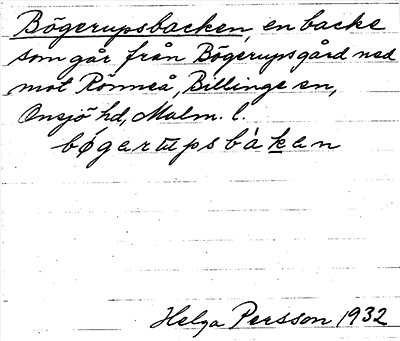 Bögerupsbacken, en backe
som går från Bögerupsgård ned
mot Rönneå, Billinge sn,
Onsjö hd, Malm. l.
bøgarupsbakan
Helga Persson 1932